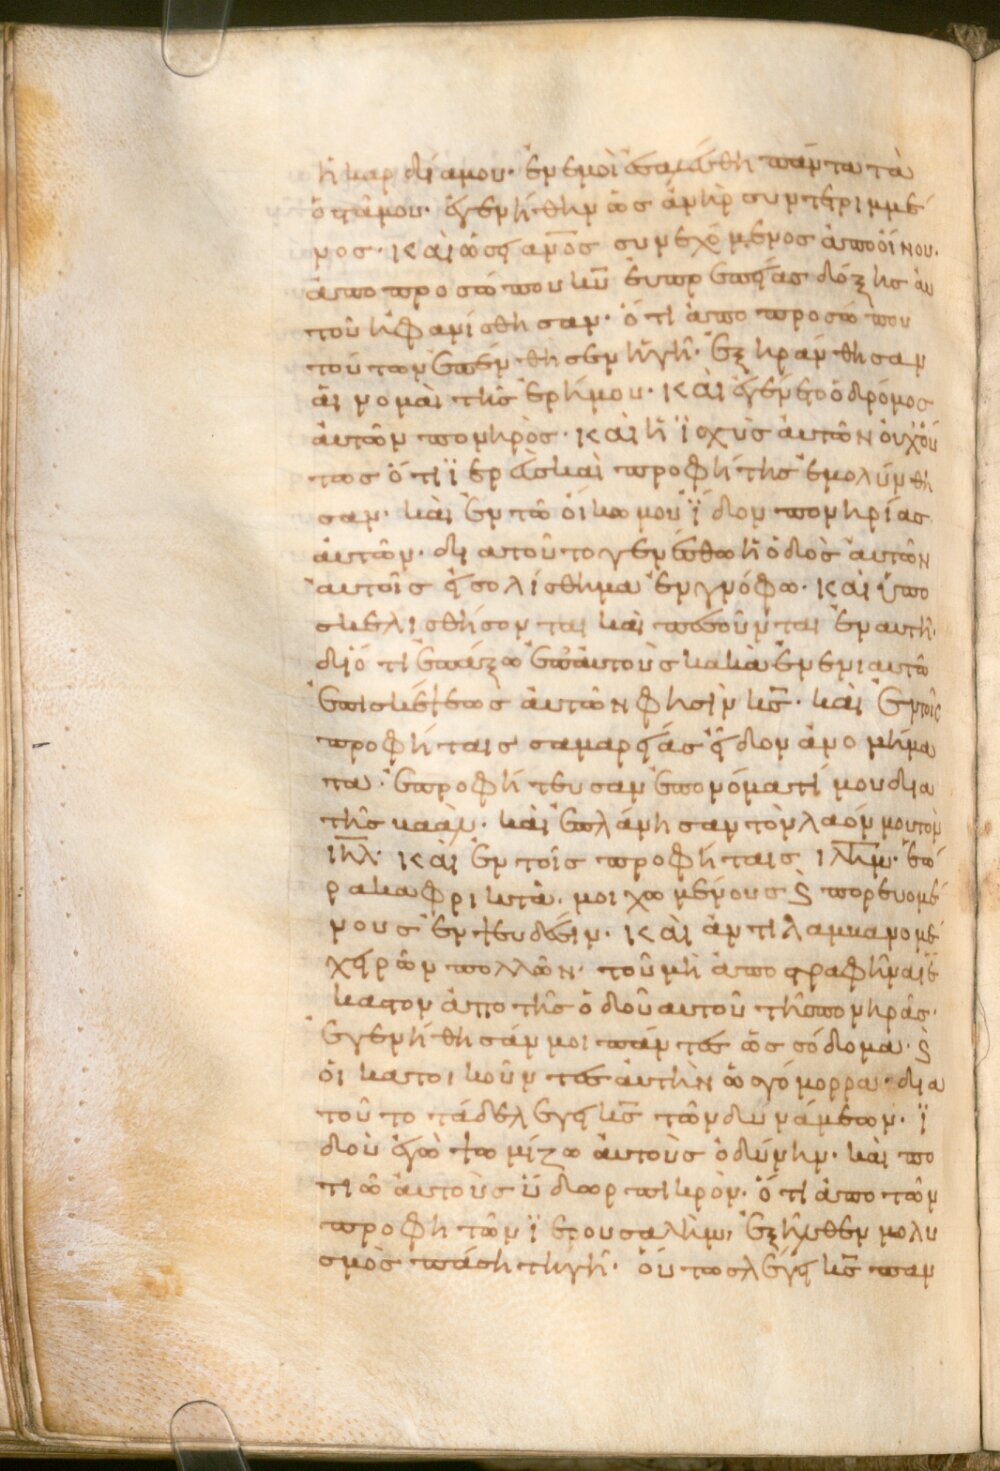 ἡ καρδία μου· ἐν ἐμοὶ ἐσαλεύθη πάντα τὰ
ὀστᾶ μου· ἐγενήθην ὡς ἀνὴρ συντετριμμέ
νος· καὶ ὡς ἄνος συνεχόμενος ἀπὸ οἴνου·
ἀπὸ προσώπου κυ εὐπρεπείας δόξης αυ
τοῦ ἠφανίσθησαν· ὅτι ἀπο προσώπου
τούτων ἐπένθησεν ἡ γῆ· ἐξηράνθησαν
αἱ νομαὶ τῆς ἐρήμου· καὶ ἐγένετο ὁ δρόμος
ἀυτῶν πονηρὸς· καὶ ἡ ϊσχὺς ἀυτῶν ὀυχ ὅυ
τως ὅτι ϊερεὺς καὶ προφήτης ἐμολύνθη
σαν· καὶ ἐν τῶ οἴκω μου ἴδον πονηρίας
ἀυτῶν· διατοῦτο γενέσθω ἡ ὁδὸς ἀυτῶν
αυτοῖς εἰς ὀλίσθημα ἐν γνόφω· καὶ ὑπο
σκελισθήσονται καὶ πεσοῦνται ἐν αυτῆ·
διότι ἐπάξω ἐπ' ἀυτοὺς κακὰ ἐν ενιαυτῶ
ἐπισκέψεως ἀυτῶν φησὶν κς· καὶ ἐν τοῖς
προφήταις σαμαρείας εἶδον ἀνομήμα
τα· ἐπροφήτευσαν ἐπ ονόματί μου δια
τῆς βαὰλ· καὶ ἐπλάνησαν τὸν λαόν μου τὸν
ιηλ· καὶ ἐν τοῖς προφήταις ιλημ· ἑώ
ρακα φρικτὰ· μοιχωμένους ϗ πορευομέ
νους ἐν ψευδέσιν· καὶ ἀντιλαμβανομέ
χειρῶν πολλῶν· τοῦ μὴ ἀποστραφῆναι ἕ
καστον ἀπο τῆς ὁδοῦ αυτοῦ τῆς πονηρᾶς·
ἐγενήθησάν μοι πάντες ὡς σόδομα· ϗ
ὁι κατοικοῦντες ἀυτὴν ὡς γόμορρα· δια
τοῦτο τάδε λέγει κς τῶν δυνάμεων· ϊ
δοὺ ἐγὼ ψωμίζω ἀυτοὺς ὀδύνην· καὶ πο
τιῶ ἀυτοὺς ὕδωρ πικρὸν· ὅτι ἀπο τῶν
προφητῶν ϊερουσαλὴμ, ἐξῆλθεν μολυ
σμὸς πάση τῆ γῆ· ὅυτως λέγει κς παν